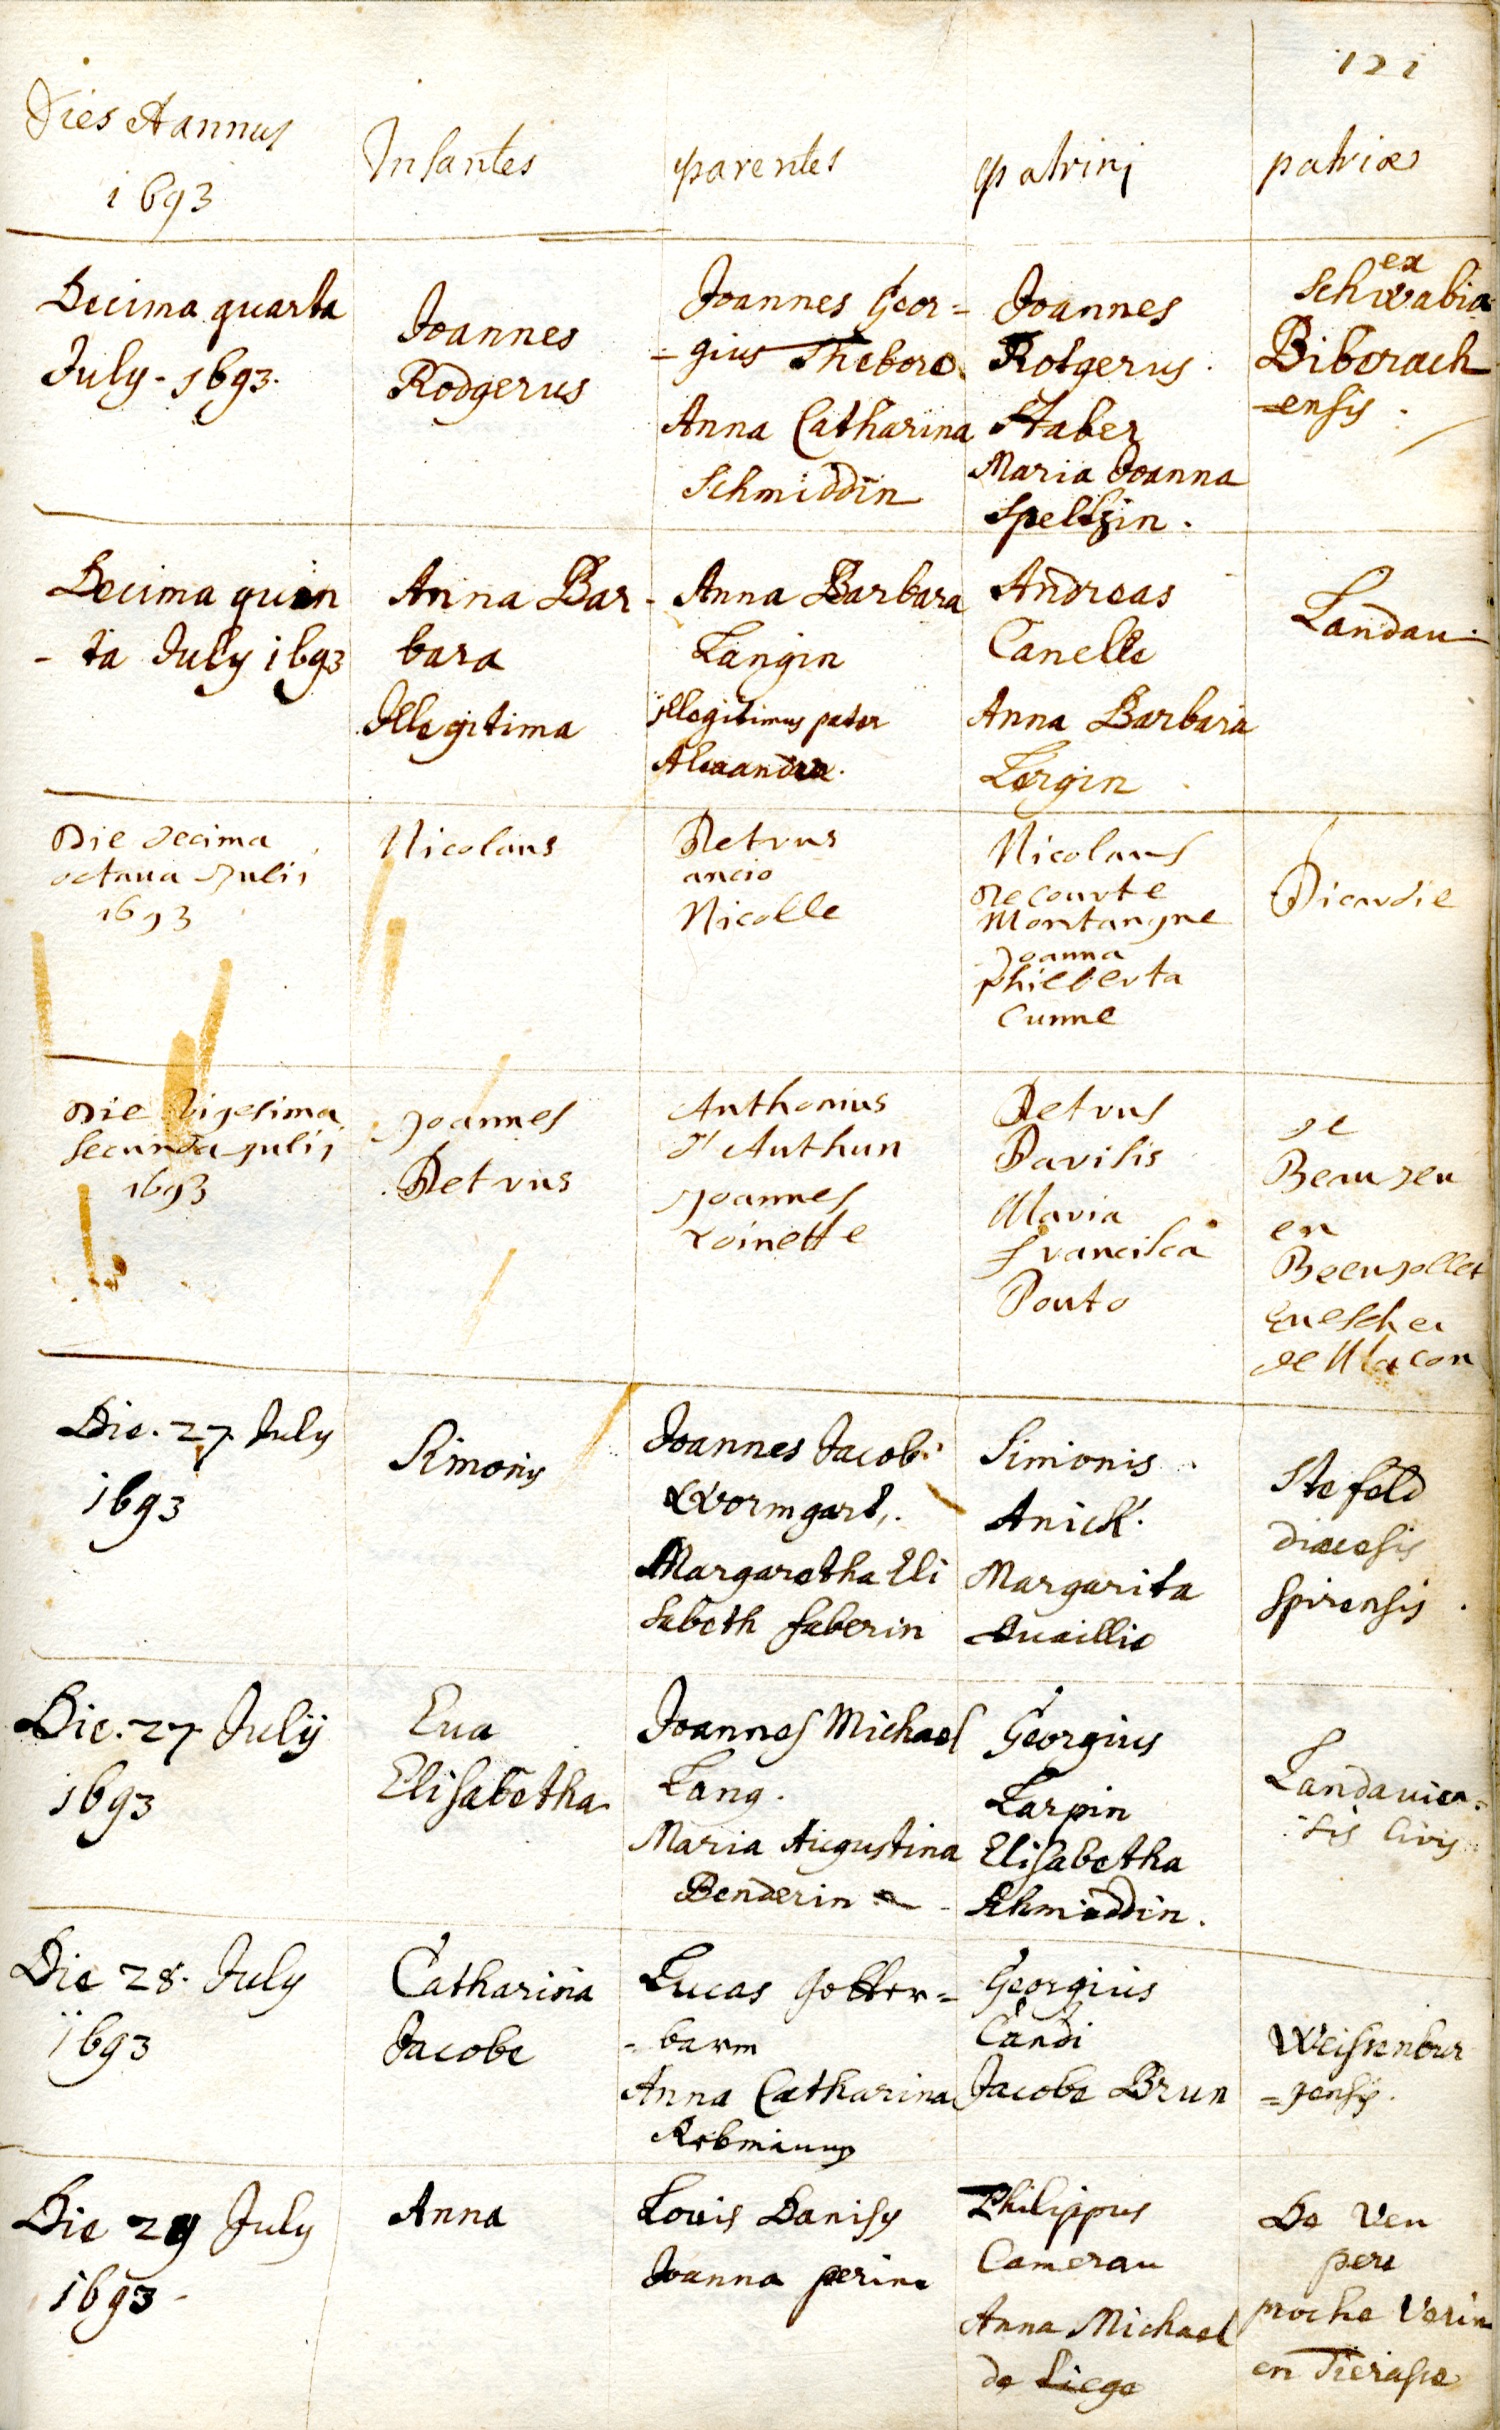 121
Dies & annus
1693
Infantes
parentes
patrinj
patriæ
Decima quarta
July - 1693.
Joannes
Rodgerus
Joannes Geor=
=gius Thebore.
Anna Catharina
Schmiddin
Joannes
Rotgerus.
Staber
Maria Joanna
Speltzin.
ex
Schwabia
Biberach
=ensis.
Decima quin
- ta July 1693
Anna Bar-
bara
Illegitima
Anna Barbara
Langin
illegitimus pater
Andreas
Canelle
Anna Barbara
Lergin
Landau.
Die decima
octaua Julij
1693
Nicolaus
Petrus
ancio
Nicolle
Nicolaus
decourte
Montangne
Joanna
philberta
Cunne
Picardie
Die vigesima
secunda Julij
1693
Joannes
Petrus
Anthonius
d'Authun
Joannes
toinette
Petrus
Parisis
Maria
francisca
Pouto
de
Beaujeu
en
Beeujollet
eueschei
de Macon
Die. 27. July
1693
Simonis
Joannes Jacobi
Wormgart.
Margaretha Eli
sabeth faberin
Simonis.
Anick.
Margarita
Ste feld
diœcesis
spirensis.
Die. 27 Julij
1693
Eua
Elisabetha
Joannes Michael
Lang.
Maria Augustina
Benderin
Georgius
Larpin
Elisabetha
Schmiddin.
Landauien=
sis Civis
Die 28. July
1693
Catharina
Jacobe
Lucas Gotter=
=barm
Anna Catharina
Georgius
Candi
Jacobe Brun
Weissenbur
=gensis.
Die 29 July
1693 -
Anna
Louis Danisy
Joanna perine
Philippus
Camerau
Anna Michael
de Liege
De Veu
pere
proche Verin
en Tierasse